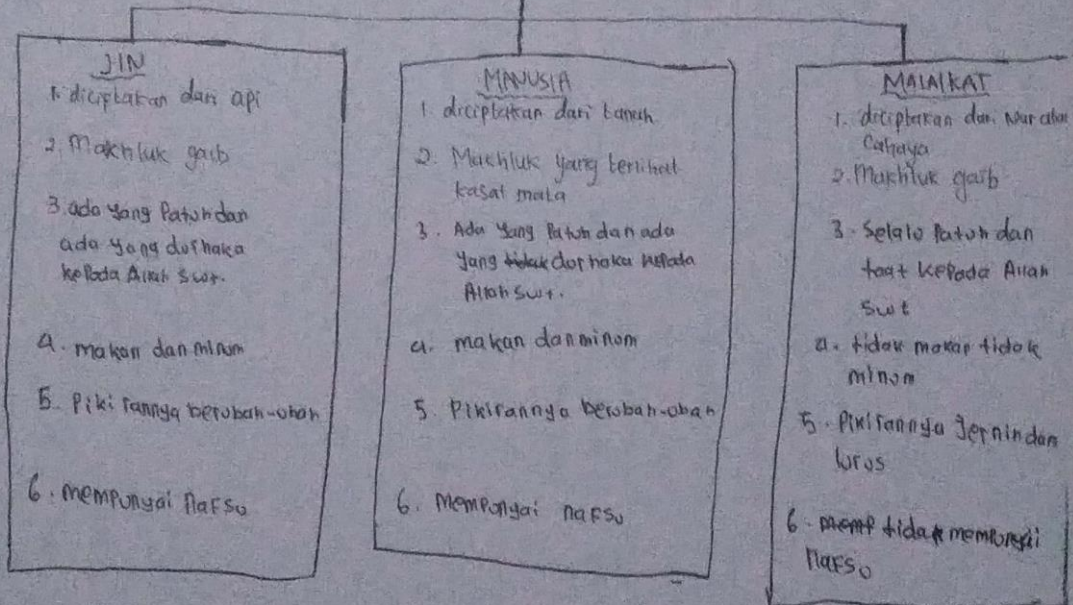 JIN
1. diciptakan dari api
2. Makhluk gaib
3. ada yang Patuh dan
ada yang durhaka
kepada Allah swt.
4. makan dan minum
5. Pikirannya berubah-ubah
6. mempunyai nafsu
MANUSIA
1. diciptakan dari tanah
2. Makhluk yang terlihat
kasat mata
3. Ada yang Patuh dan ada
yang durhaka kepada
Allah swt.
4. makan dan minum
5. Pikirannya berubah-ubah
6. Mempunyai nafsu
MALAIKAT
1. diciptakan dari Nur atau
Cahaya
2. Makhluk gaib
3. Selalu Patuh dan
taat kepada Allah
swt
4. tidak makan tidak
minum
5. Pikirannya Jernih dan
lurus
6. tidak mempunyai
nafsu